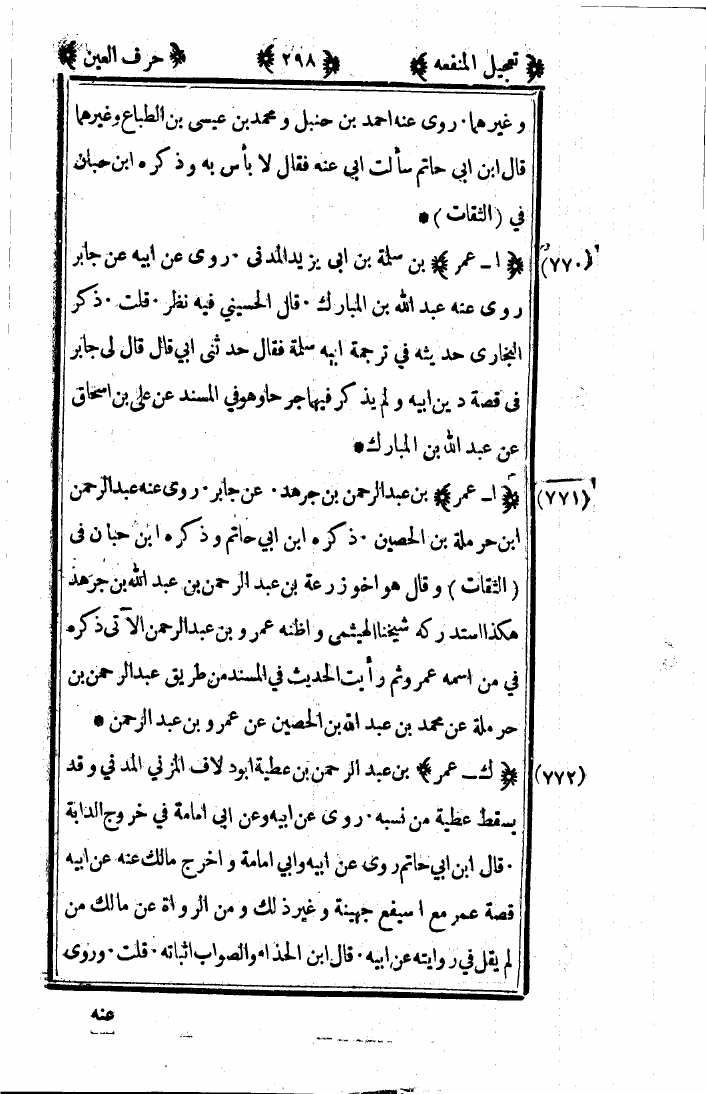 ﴿ تعجيل المنفعه ﴾ ﴿ ٢٩٨ ﴾ ﴿ حرف العين ﴾
وغيرهما · روى عنه احمد بن حنبل و محمد بن عيسى بن الطباع وغيرهما
قال ابن ابي حاتم سألت ابي عنه فقال لا بأس به وذكره ابن حبان
في ( الثقات ) *
(٧٧٠) ﴿ ا ـ عمر ﴾ بن سلمة بن ابى يزيد المدنى · روى عن ابيه عن جابر
روى عنه عبد الله بن المبارك · قال الحسيني فيه نظر · قلت · ذكر
البخارى حديثه في ترجمة ابيه سلمة فقال حدثنى ابي قال قال لى جابر
فى قصة دين ابيه و لم يذكر فيها جرحا وهو في المسند عن على بن اسحاق
عن عبد الله بن المبارك *
(٧٧١) ﴿ ا ـ عمر ﴾ بن عبد الرحمن بن جرهد · عن جابر · روى عنه عبد الرحمن
ابن حرملة بن الحصين · ذكره ابن ابي حاتم و ذكره ابن حبان فى
( الثقات ) و قال هو اخو زرعة بن عبد الرحمن بن عبد الله بن جرهد
هكذا استدركه شيخنا الهيثمى و اظنه عمرو بن عبد الرحمن الآتى ذكره
في من اسمه عمرو ثم رأيت الحديث في المسند من طريق عبد الرحمن بن
حرملة عن محمد بن عبد الله بن الحصين عن عمرو بن عبد الرحمن *
(٧٧٢) ﴿ ك ـ عمر ﴾ بن عبد الرحمن بن عطية ابو دلاف المزني المدني و قد
يسقط عطية من نسبه · روى عن ابيه وعن ابى امامة في خروج الدابة
· قال ابن ابي حاتم روى عن ابيه وابي امامة و اخرج مالك عنه عن ابيه
قصة عمر مع اسيفع جهينة و غير ذلك و من الرواة عن مالك من
لم يقل في روايته عن ابيه · قال ابن الحذاء والصواب اثباته · قلت · وروى
عنه